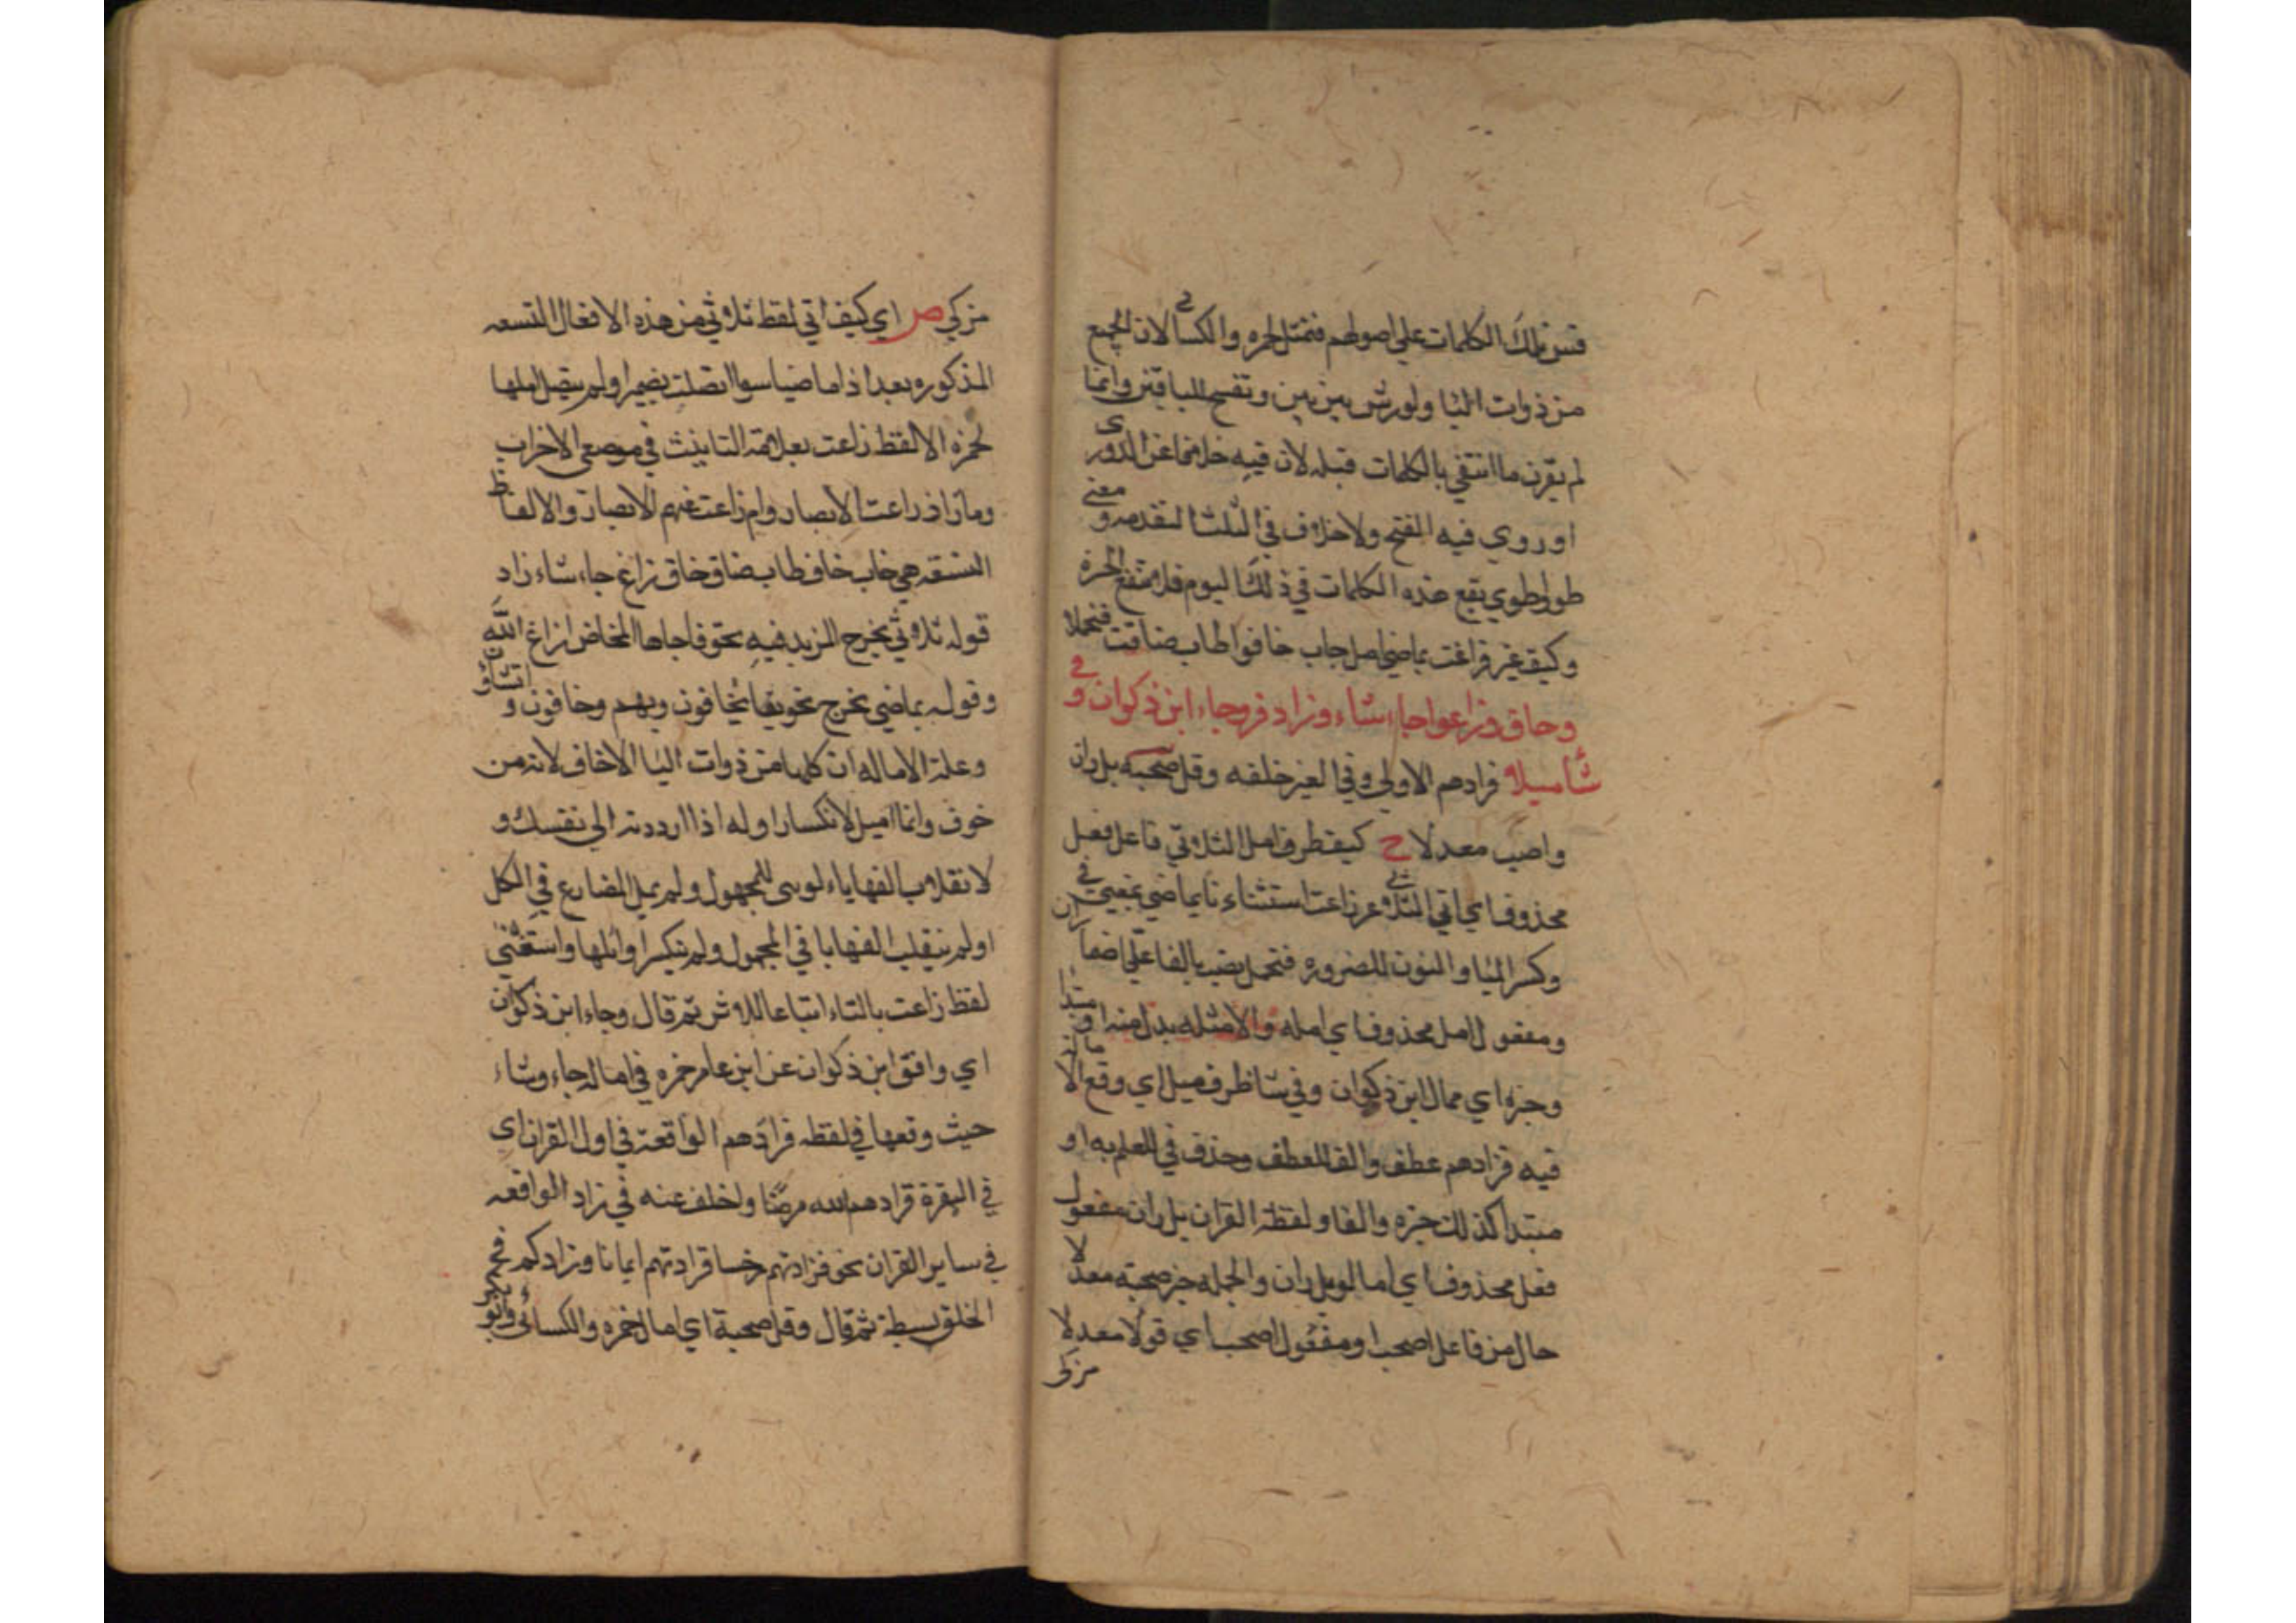 فسن تلك الكلمات على اصولهم فتمثل لحمزه والكسائي لان الجميع
من ذوات اليا ولورش بين بين وتفتح للباقين وانما
لم يقرن ما انتفي بالكلمات قبله لان فيه خلافا عن الدوري
او روي فيه الفتح ولا خلاف في الثلثا المتقدمه ومعنى
طوا طوي يقع هذه الكلمات في ذلك اليوم فلا لحمزة
وكيف غير زاغت بماضي امل خاب خافوا طاب ضاقت فتجملا
وحاق وزاغوا جاء شاء وزاد فز وجاء ابن ذكوان وفي
شاميلا فزادهم الاولى وفي الغير خلفه وقل صحبه بل ران
واصب معدلا ح كيف ظرف امل الثلاثي فاعل فعل
محذوف اي اتي الثلاثي غر زاغت استثناء نا بماضي بمعنى في
وكسر اليا والنون للضروره فتجمل نصب بالفا على اضمار ان
ومفعول امل محذوف اي امله والامثله بدل منه او مبتدا
وخبره اي ممال ابن ذكوان وفي شا ظرف ميل اي وقع الاماله
فيه فزادهم عطف والف للعطف وحذف في للعلم به او
مبتدا كذلك خبره والفا و لفظة القران بل ران مفعول
فعل محذوف اي امالو بل ران والجمله خبر صحبته معدلا
حال من فاعل اصحبا ومفعول اصحبا اي قولا معدلا
مزكي
مزكي ص اي كيف اتي لفظ ثلاثي من هذه الافعال التسعه
المذكوره بعد اذا ماضيا سوا اتصلت بضمير او لم يتصل املها
لحمزه الا لفظ زاغت بعلامة التانيث في موضعي الاحزاب
وما زاذ زاغت الابصار وام زاغت عنهم الابصار والالفاظ
التسعه هي خاب خاف طاب ضاق حاق زاغ جاء شاء زاد
قوله ثلاثي يخرج المزيد فيه نحو فاجاها المخاض ازاغ الله
وقوله بماضي يخرج نحو يخافون وخافون و ان تشاؤ
وعلة الاماله ان كلها من ذوات اليا الا خاف لانه من
خوف وانما اميل لانكسار اوله اذا رددته الى نفسك و
لانقلاب الفها ياء لو بني للمجهول ولم يمل المضارع في الكل
اولم ينقلب الفها يا في المجهول ولم ينكسر اوائلها واستثنى
لفظ زاغت بالتاء اتباعا للاثر ثم قال وجاء ابن ذكوان
اي وافق ابن ذكوان عن ابن عامر حمزه في امالة جاء وشاء
حيث وقعها في لفظه فزادهم الواقعة في اول القران اي
في البقرة فزادهم الله مرضا ولخلف عنه في زاد الواقعه
في ساير القران نحو فزادتهم رجسا فزادتهم ايمانا وزادكم في
الخلق بسطة ثم قال وقل صحبة اي امال حمزه والكسائي وابو بكر